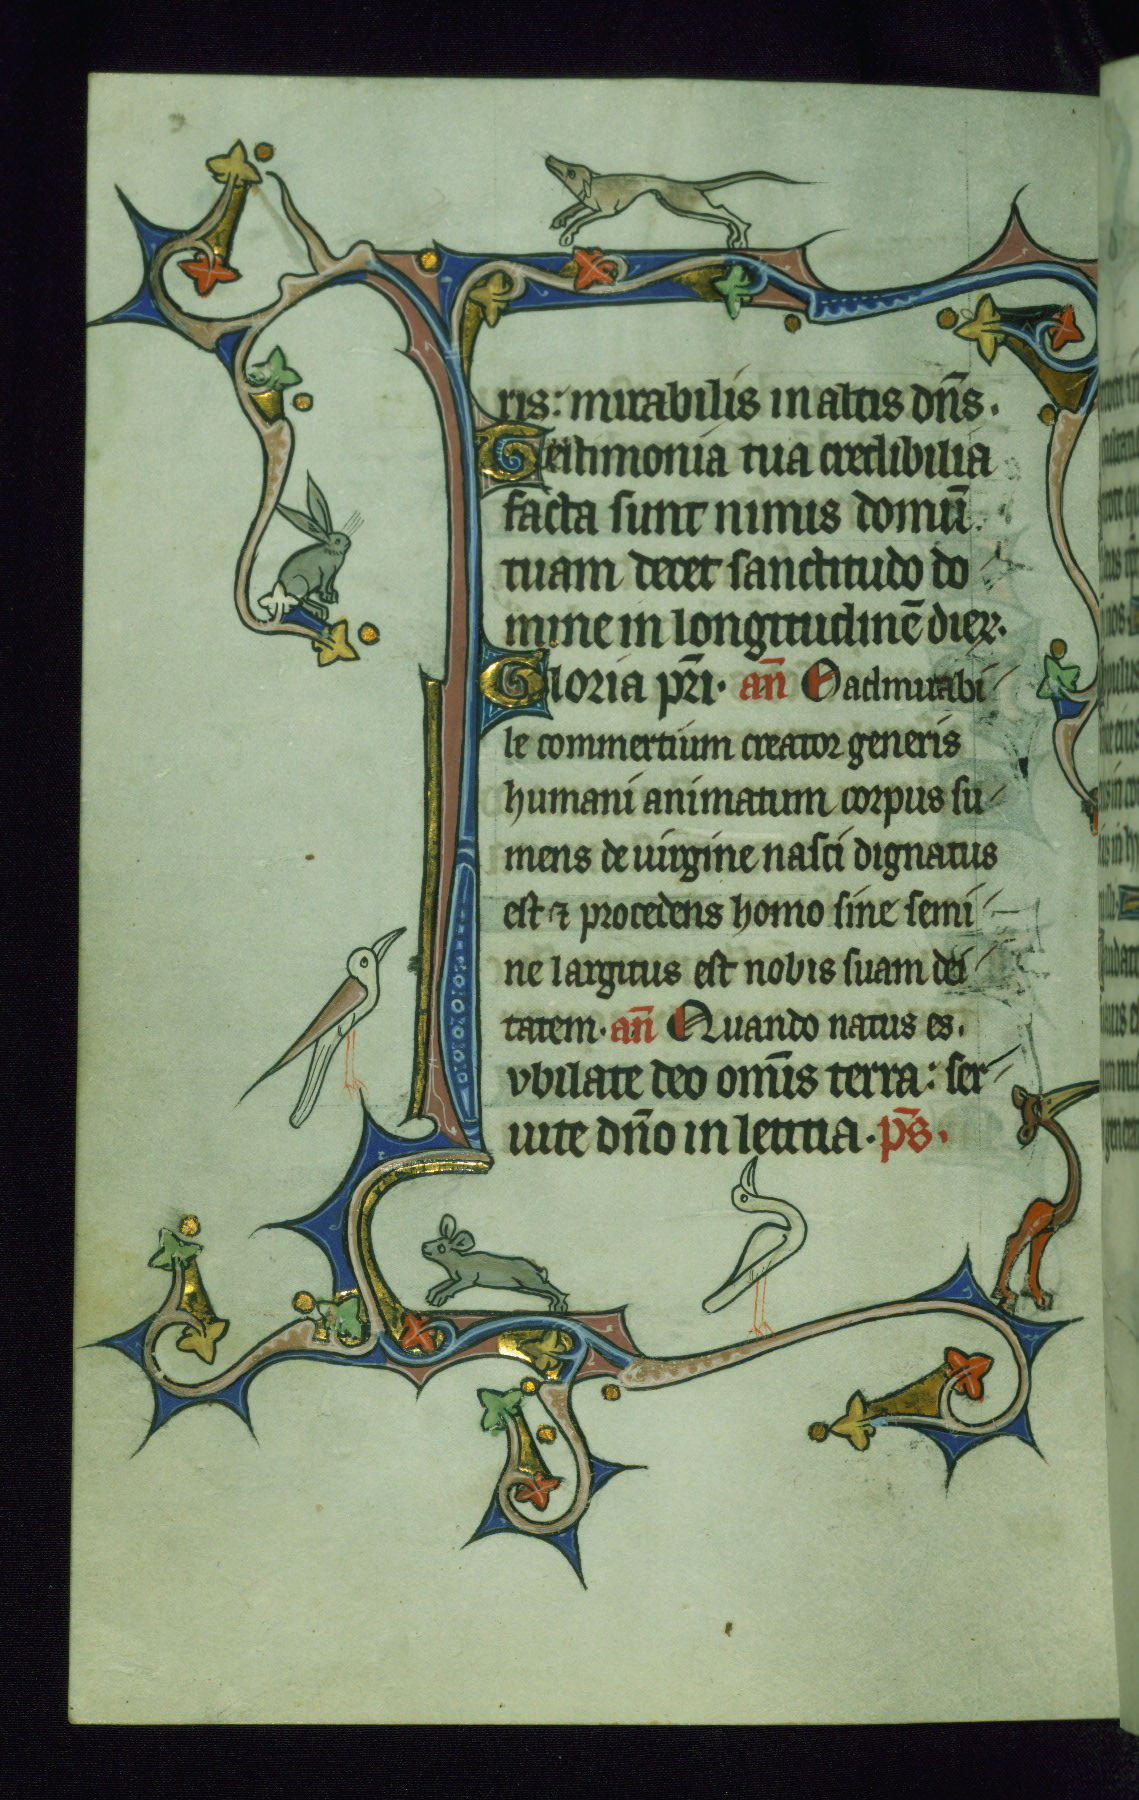 ris: mirabilis in altis dn̄s.
Gestimonia tua credibilia
facta sunt nimis domū
tuam decet sanctitudo do
mine in longitudinē dieꝝ.
Gloria pr̄i. an̄ O admirabi
le commertium creator generis
humani animatum corpus su
mens de uirgine nasci dignatus
est ⁊ procedens homo sine semi
ne largitus est nobis suam dei
tatem. an̄ Quando natus es.
vbilate deo omīs terra: ser
uite dn̄o in letitia. p̄s.